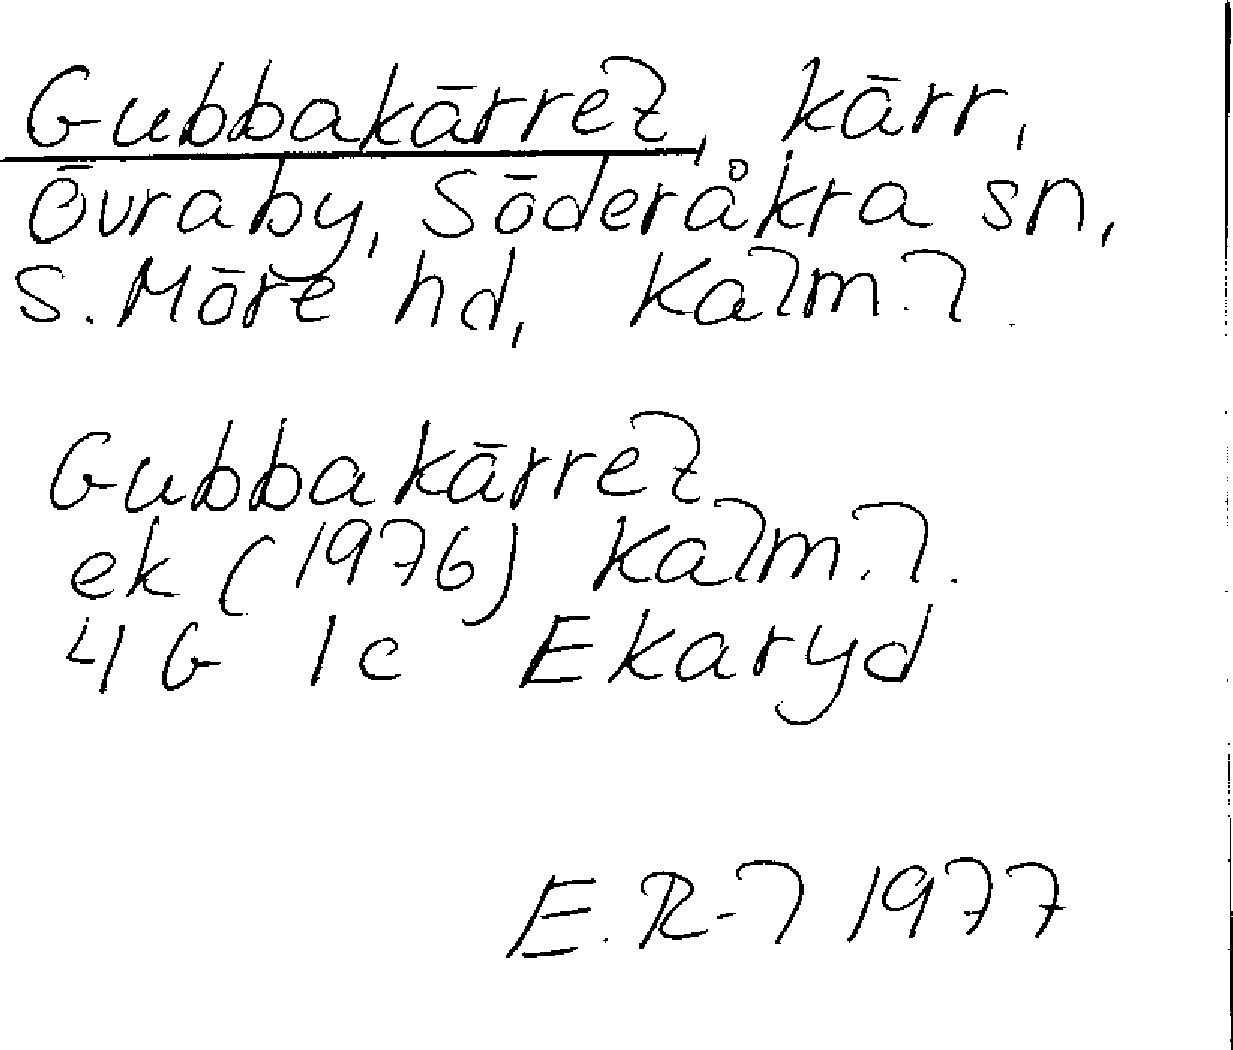 Gubbakärret, kärr,
Övraby, Söderåkra sn,
S. Möre hd, Kalm. l.
Gubbakärret
ek (1976) Kalm. l.
4G 1c Ekaryd
E.R-l 1977